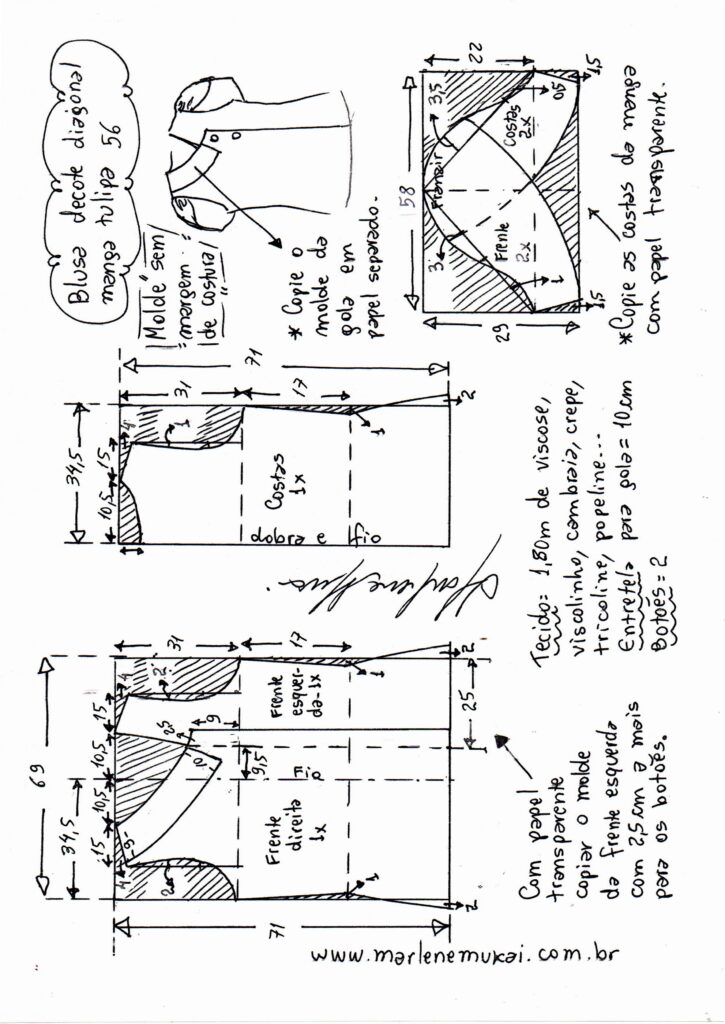 Blusa decote diagonal
manga tulipa 56
Molde sem
margem
de costura
* Copie o
molde da
gola em
papel separado.
22
58
29
3,5
3
0,5
1,5
1
1,5
Franzir
Costas
2x
Frente
2x
* Copie as costas da manga
com papel transparente.
71
31
17
34,5
15
10,5
4
1
1
2
Costas
1x
dobra e fio
Tecido = 1,80m de viscose,
viscolinho, cambraia, crepe,
tricoline, popeline...
Entretela para gola = 10cm
Botões = 2
69
34,5
15
10,5
10,5
15
31
17
4
2
4
2
25
10
9
9,5
25
1
2
1
2
71
Frente
esquer-
da-1x
Fio
Frente
direita
1x
Com papel
transparente
copiar o molde
da frente esquerda
com 2,5cm a mais
para os botões.
www.marlenemukai.com.br